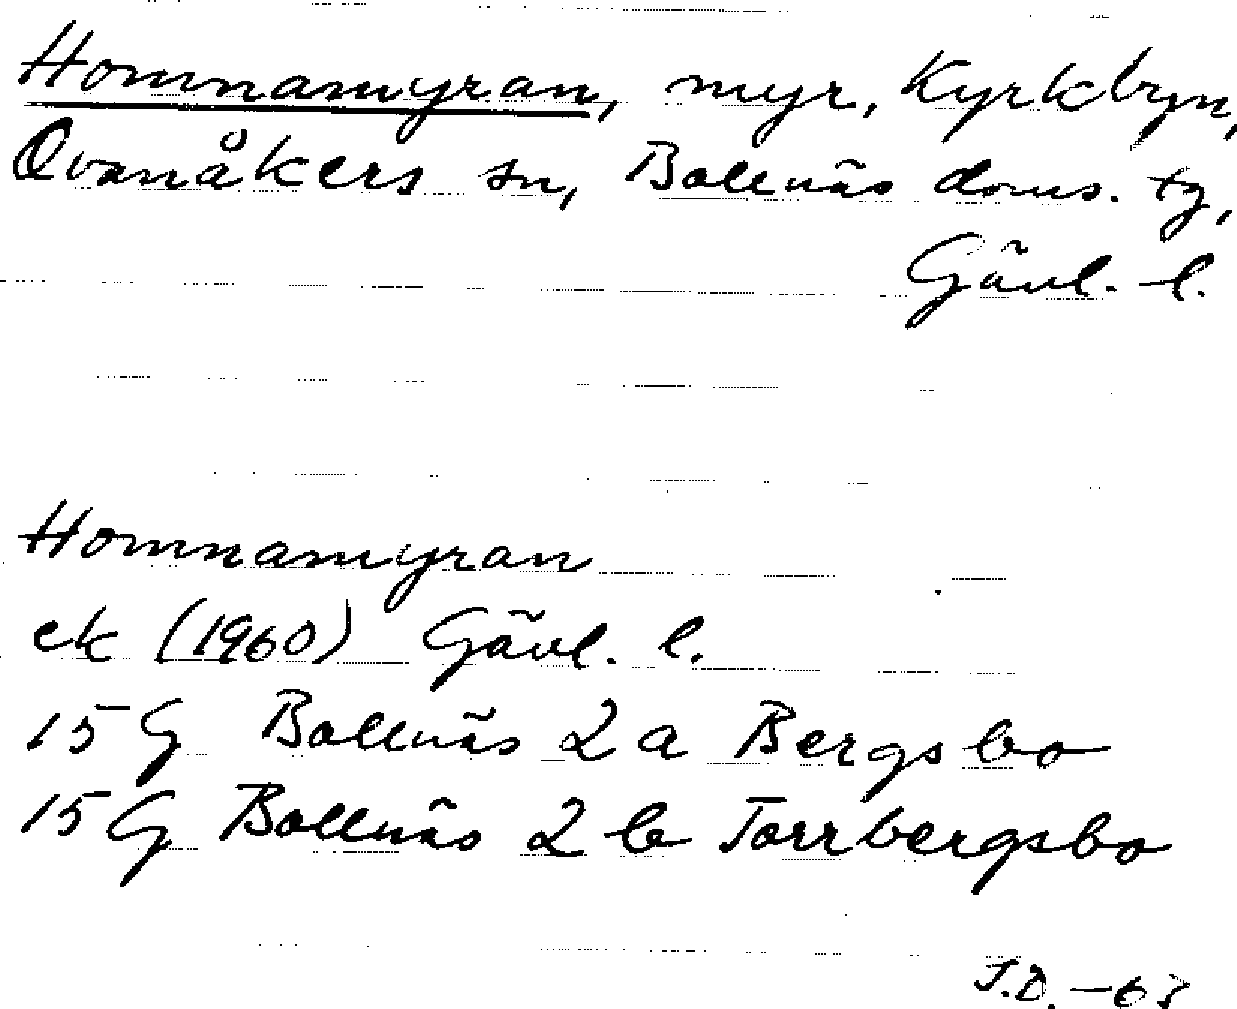 Homnamyran, myr, Kyrkbyn,
Ovanåkers sn, Bollnäs doms. tg,
Gävl. l.
Homnamyran
ek (1960) Gävl. l.
15 G Bollnäs 2 a Bergsbo
15 G Bollnäs 2 b Torrbergsbo
J.D. -63